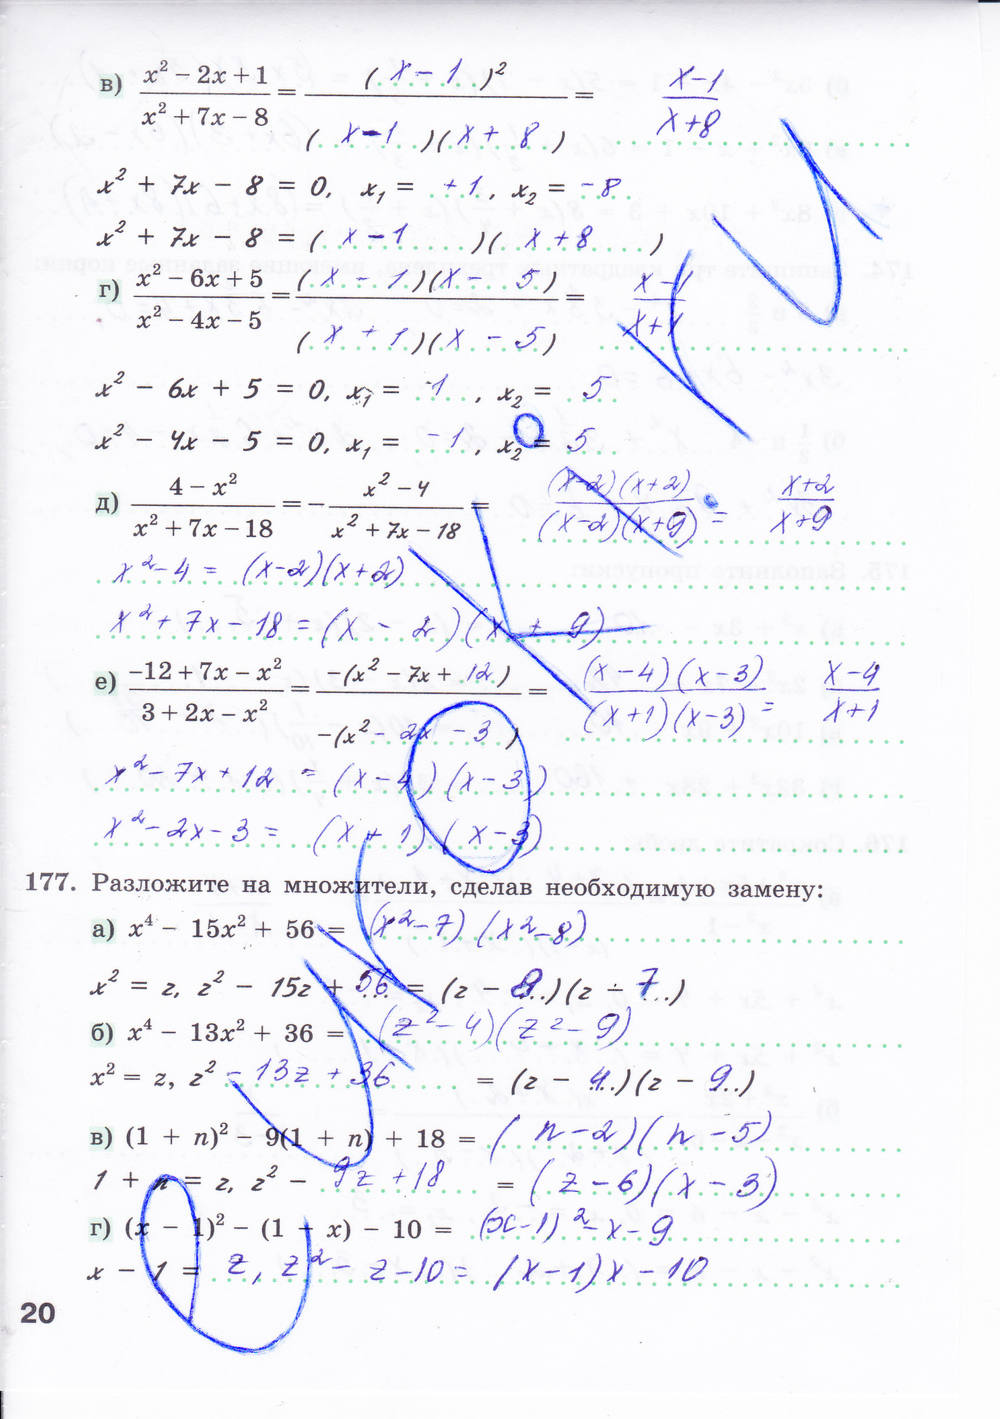 в) (x² − 2x + 1)/(x² + 7x − 8) = (x − 1)²/((x − 1)(x + 8)) = (x − 1)/(x + 8)
x² + 7x − 8 = 0, x₁ = +1, x₂ = −8
x² + 7x − 8 = (x − 1)(x + 8)
г) (x² − 6x + 5)/(x² − 4x − 5) = ((x − 1)(x − 5))/((x + 1)(x − 5)) = (x − 1)/(x + 1)
x² − 6x + 5 = 0, x₁ = 1, x₂ = 5
x² − 4x − 5 = 0, x₁ = −1, x₂ = 5
д) (4 − x²)/(x² + 7x − 18) = − (x² − 4)/(x² + 7x − 18) = ((x−2)(x+2))/((x−2)(x+9)) = (x+2)/(x+9)
x² − 4 = (x−2)(x+2)
x² + 7x − 18 = (x − 2)(x + 9)
е) (−12 + 7x − x²)/(3 + 2x − x²) = −(x² − 7x + 12)/−(x² − 2x − 3) = ((x − 4)(x − 3))/((x + 1)(x − 3)) = (x − 4)/(x + 1)
x² − 7x + 12 = (x − 4)(x − 3)
x² − 2x − 3 = (x + 1)(x − 3)
177. Разложите на множители, сделав необходимую замену:
а) x⁴ − 15x² + 56 = (x² − 7)(x² − 8)
x² = z, z² − 15z + 56 = (z − 8)(z − 7)
б) x⁴ − 13x² + 36 = (z² − 4)(z² − 9)
x² = z, z² − 13z + 36 = (z − 4)(z − 9)
в) (1 + n)² − 9(1 + n) + 18 = (n − 2)(n − 5)
1 + n = z, z² − 9z + 18 = (z − 6)(x − 3)
г) (x − 1)² − (1 + x) − 10 = (x − 1)² − x − 9
x − 1 = z, z² − z − 10 = (x − 1)x − 10
20